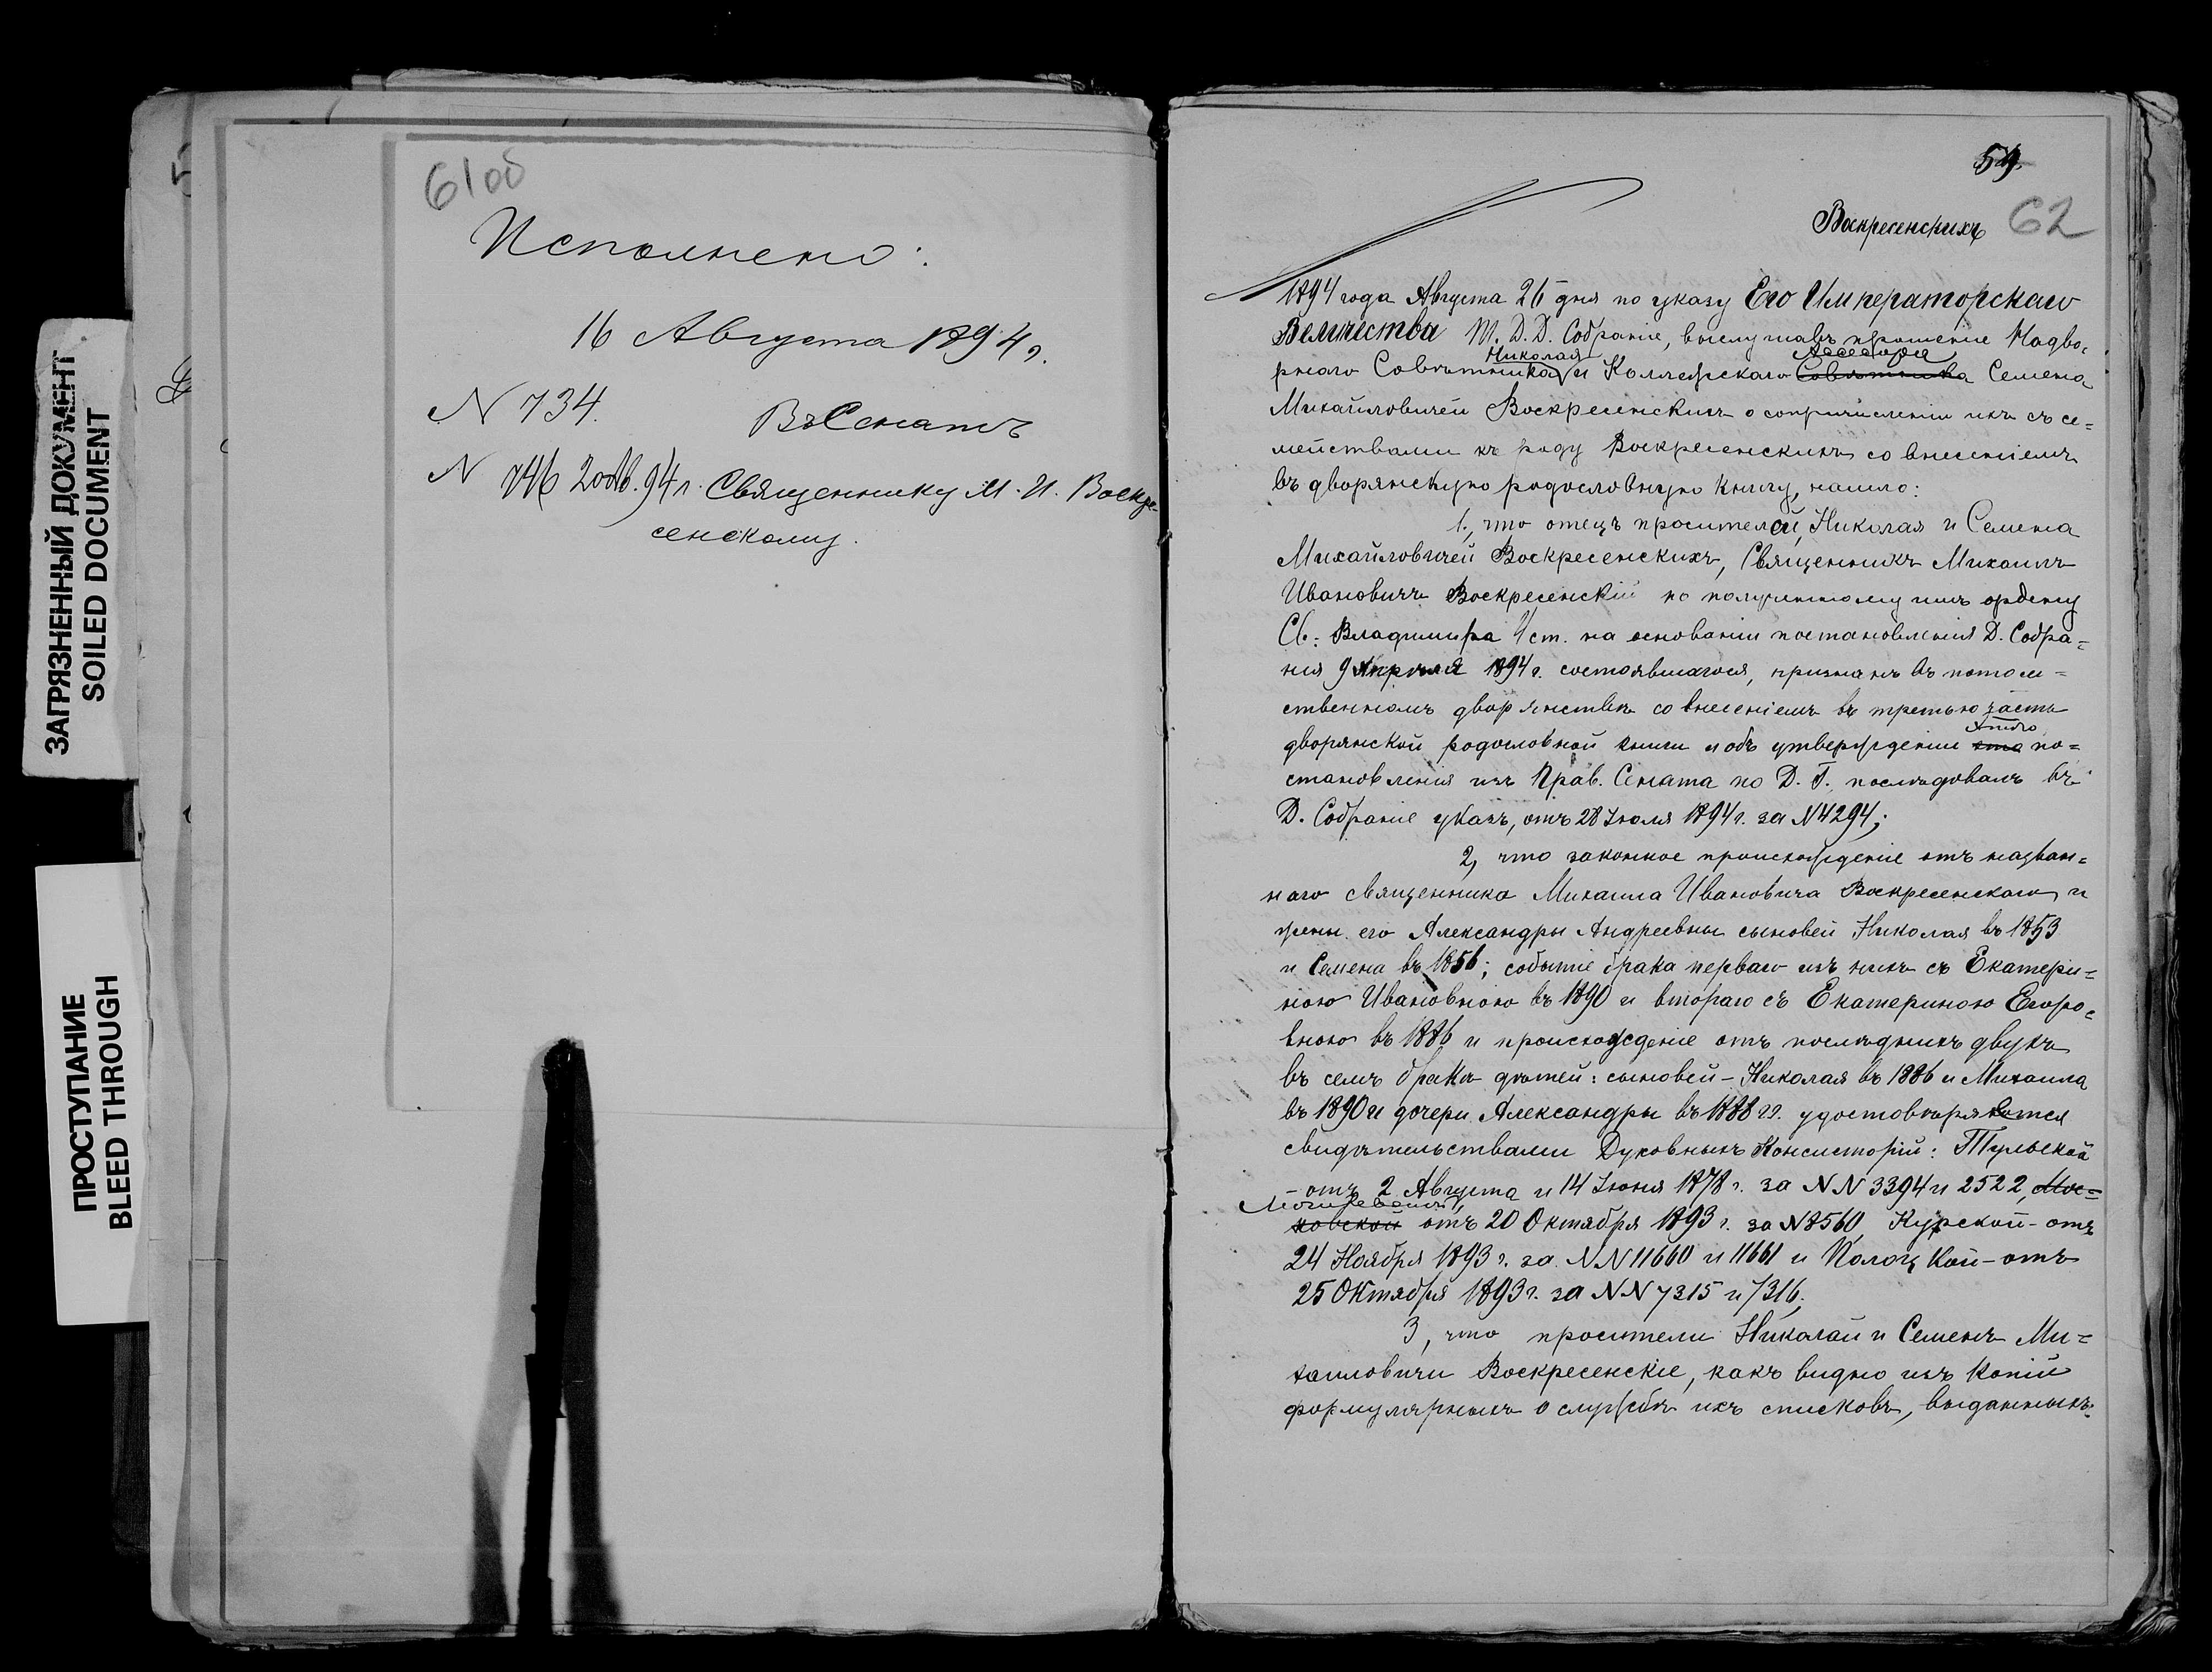 ЗАГРЯЗНЕННЫЙ ДОКУМЕНТ
SOILED DOCUMENT
ПРОСТУПАНИЕ
BLEED THROUGH
61об
Исполнено:
16 Августа 1894 г.
N 734. Въ Сенатъ
N 746 20 Ав. 94 г. Священнику М. И. Воскре-
сенскому.
59
Воскресенскихъ 62
1894 года Августа 26 дня по указу Его Императорскаго
Величества Т. Д. Д. Собраніе, выслушавъ прошеніе Надво-
Николая Ассесора
рнаго Совѣтника и Коллежскаго Совѣтника Семена
Михайловичей Воскресенскихъ о сопричисленіи ихъ съ се=
мействами къ роду Воскресенскихъ со внесеніемъ
въ дворянскую родословную книгу, нашло:
1., что отецъ просителей, Николая и Семена
Михайловичей Воскресенскихъ, Священникъ Михаилъ
Ивановичъ Воскресенскій по полученному имъ ордену
Св. Владимира 4 ст. на основаніи постановленія Д. Собра=
нія 9 Апрѣля 1894 г. состоявшагося, признанъ въ потом=
ственномъ дворянствѣ со внесеніемъ въ третью часть
дворянской родословной книги и объ утвержденіи по=
становленія изъ Прав. Сената по Д. Г. послѣдовалъ въ
Д. Собраніе указъ, отъ 28 Іюля 1894 г. за N 4294;
2, что законное происхожденіе отъ назван=
наго священника Михаила Ивановича Воскресенскаго и
жены его Александры Андреевны сыновей Николая въ 1853
и Семена въ 1856; событіе брака перваго изъ нихъ съ Екатери=
ною Ивановною въ 1890 и втораго съ Екатериною Егоро=
вною въ 1886 и происхожденіе отъ послѣднихъ двухъ
въ семъ бракѣ дѣтей: сыновей - Николая въ 1886 и Михаила
въ 1890 и дочери Александры въ 1888 гг. удостовѣряются
свидѣтельствами Духовныхъ Консисторій: Тульской
- отъ 2 Августа и 14 Іюня 1878 г. за NN 3394 и 2522, Мос=
Могилевской
ковской отъ 20 Октября 1893 г. за N 8560, Курской - отъ
24 Ноября 1893 г. за NN 11660 и 11661 и Полоцкой - отъ
25 Октября 1893 г. за NN 7315 и 7316;
3, что просители Николай и Семенъ Ми=
хаиловичи Воскресенскіе, какъ видно изъ копій
формулярныхъ о службѣ ихъ списковъ, выданныхъ